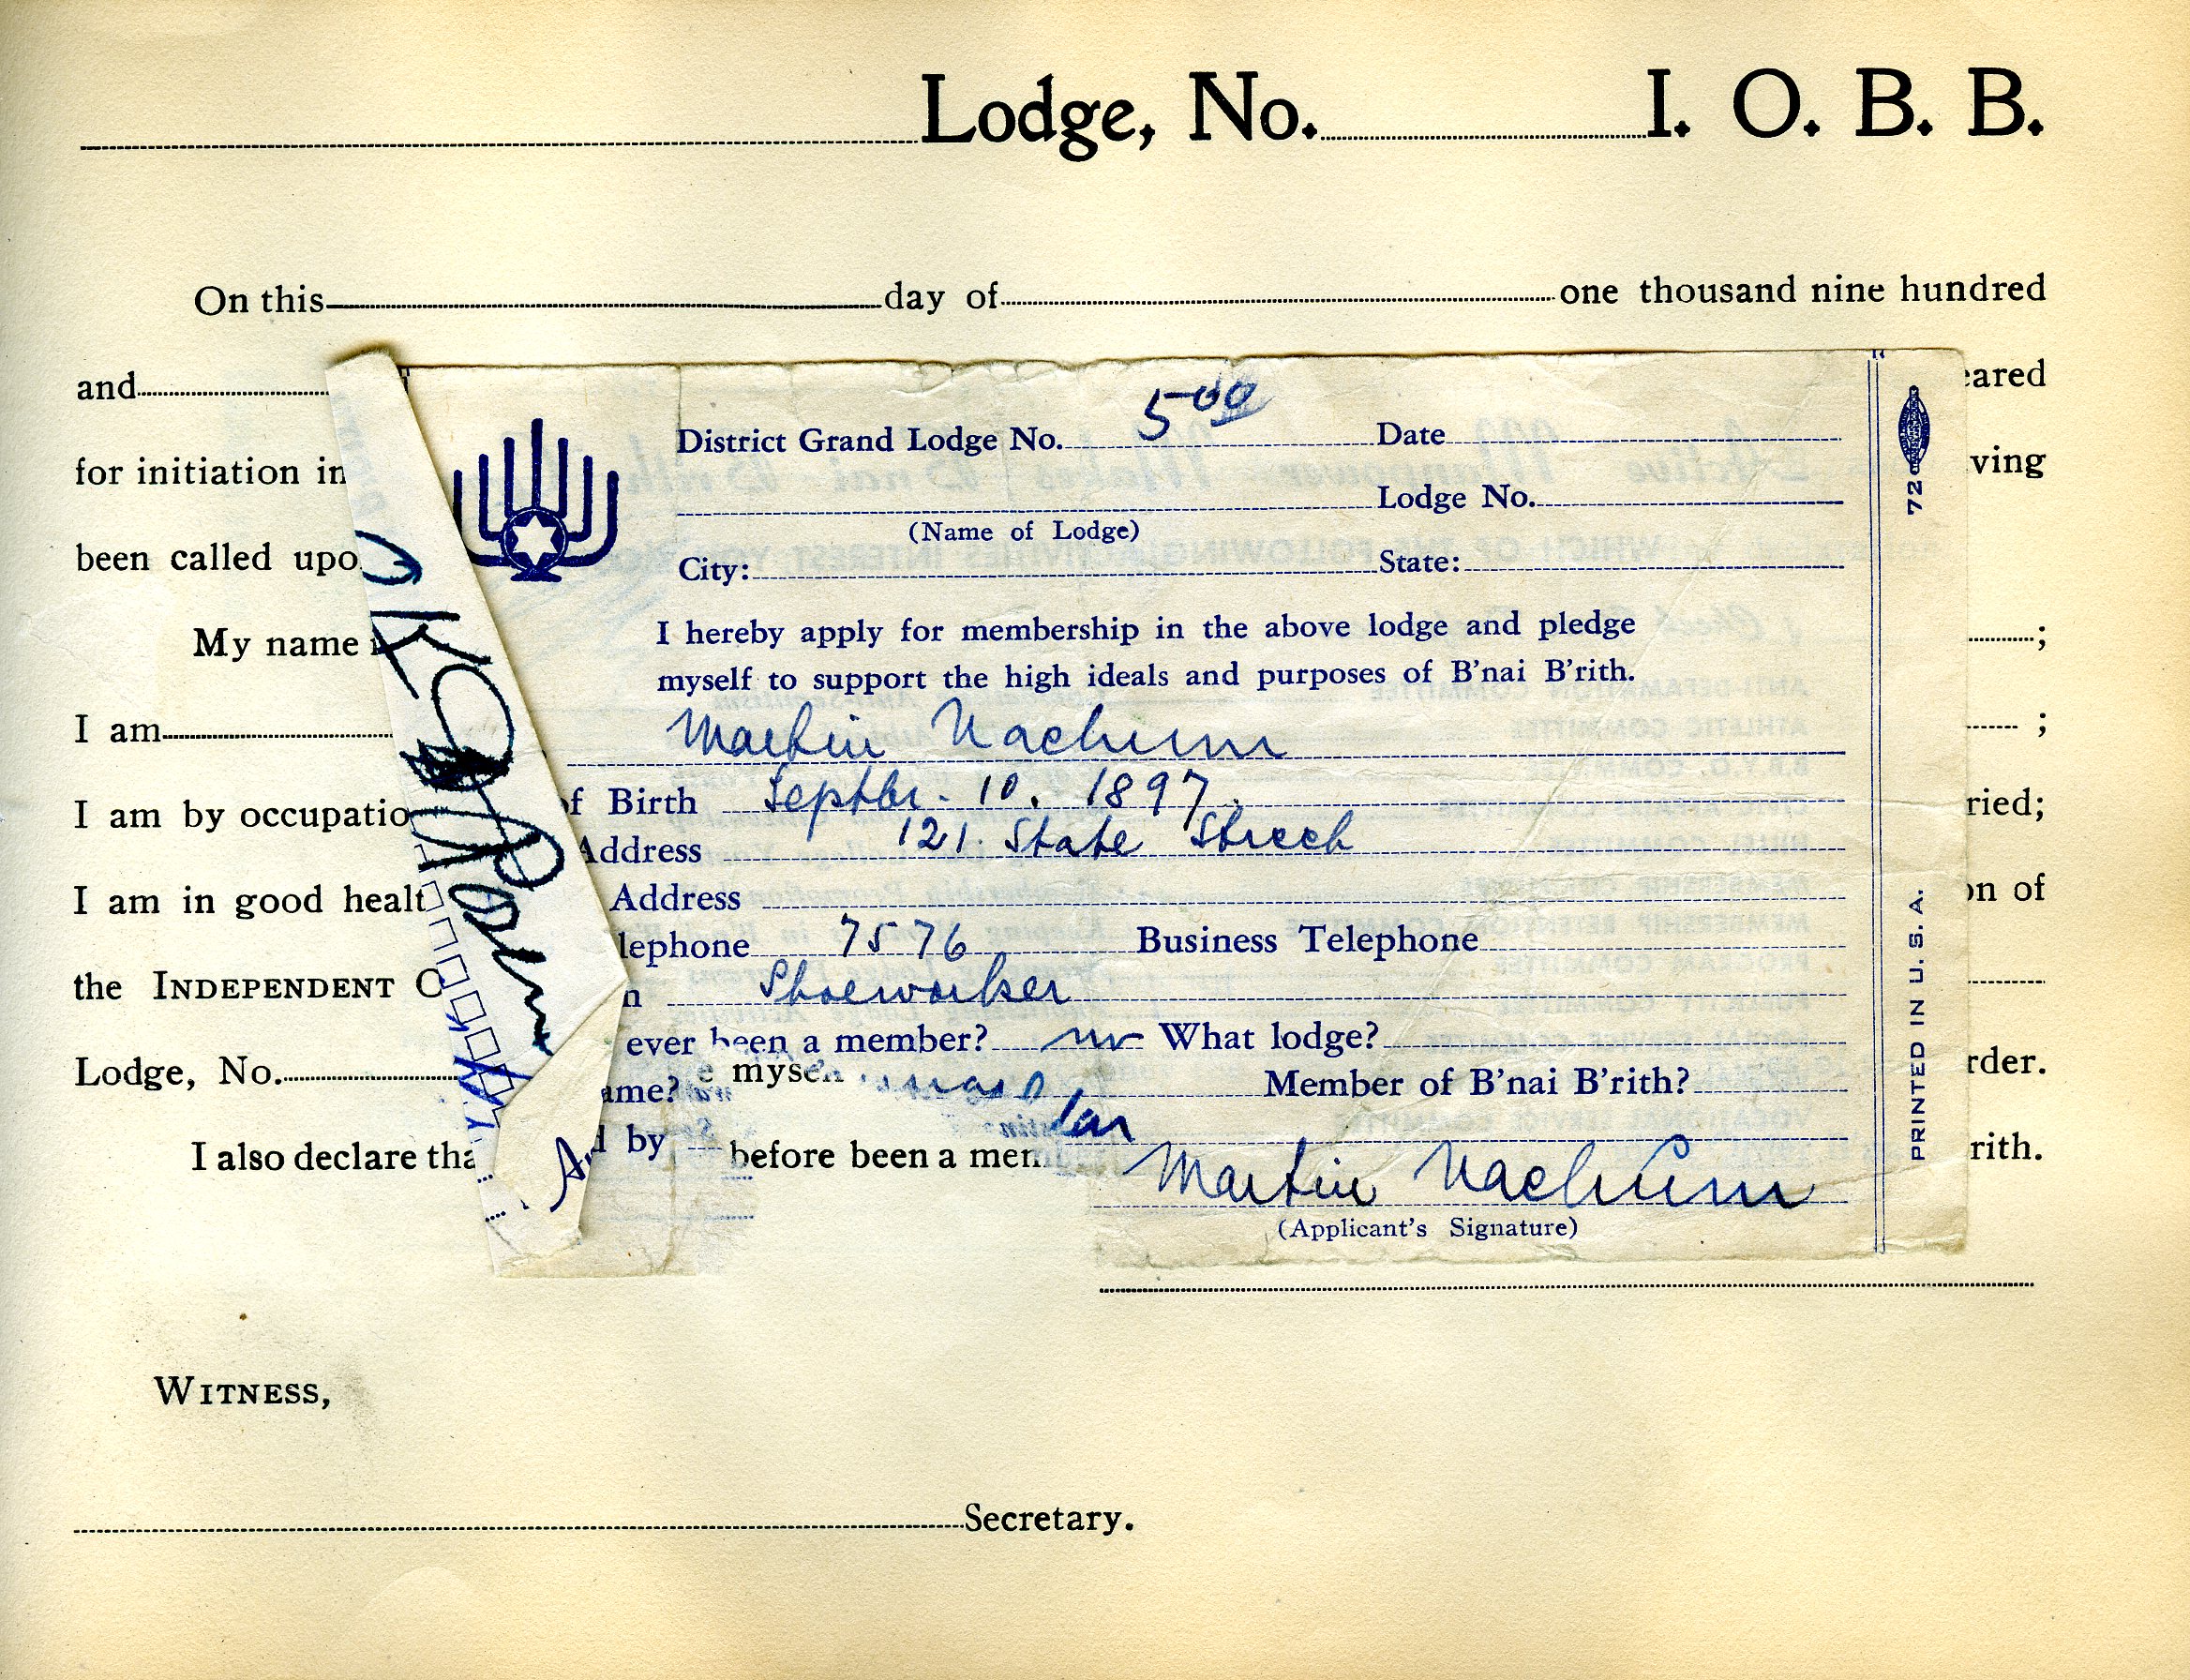 Lodge, No. I. O. B. B.
On this day of one thousand nine hundred
and eared
for initiation in ving
been called upo
My name ;
I am ;
I am by occupatio ried;
I am in good healt on of
the INDEPENDENT O
Lodge, No. rder.
I also declare tha before been a mem rith.
e myself
WITNESS,
Secretary.
District Grand Lodge No. 5 00 Date
Lodge No.
(Name of Lodge)
City: State:
I hereby apply for membership in the above lodge and pledge
myself to support the high ideals and purposes of B'nai B'rith.
Martin Nachum
of Birth Septbr. 10. 1897.
Address 121. State Street
Address
lephone 7576 Business Telephone
n Shoeworker
ever been a member? no What lodge?
ame? Member of B'nai B'rith?
d by
Martin Nachum
(Applicant's Signature)
72
PRINTED IN U. S. A.
OK